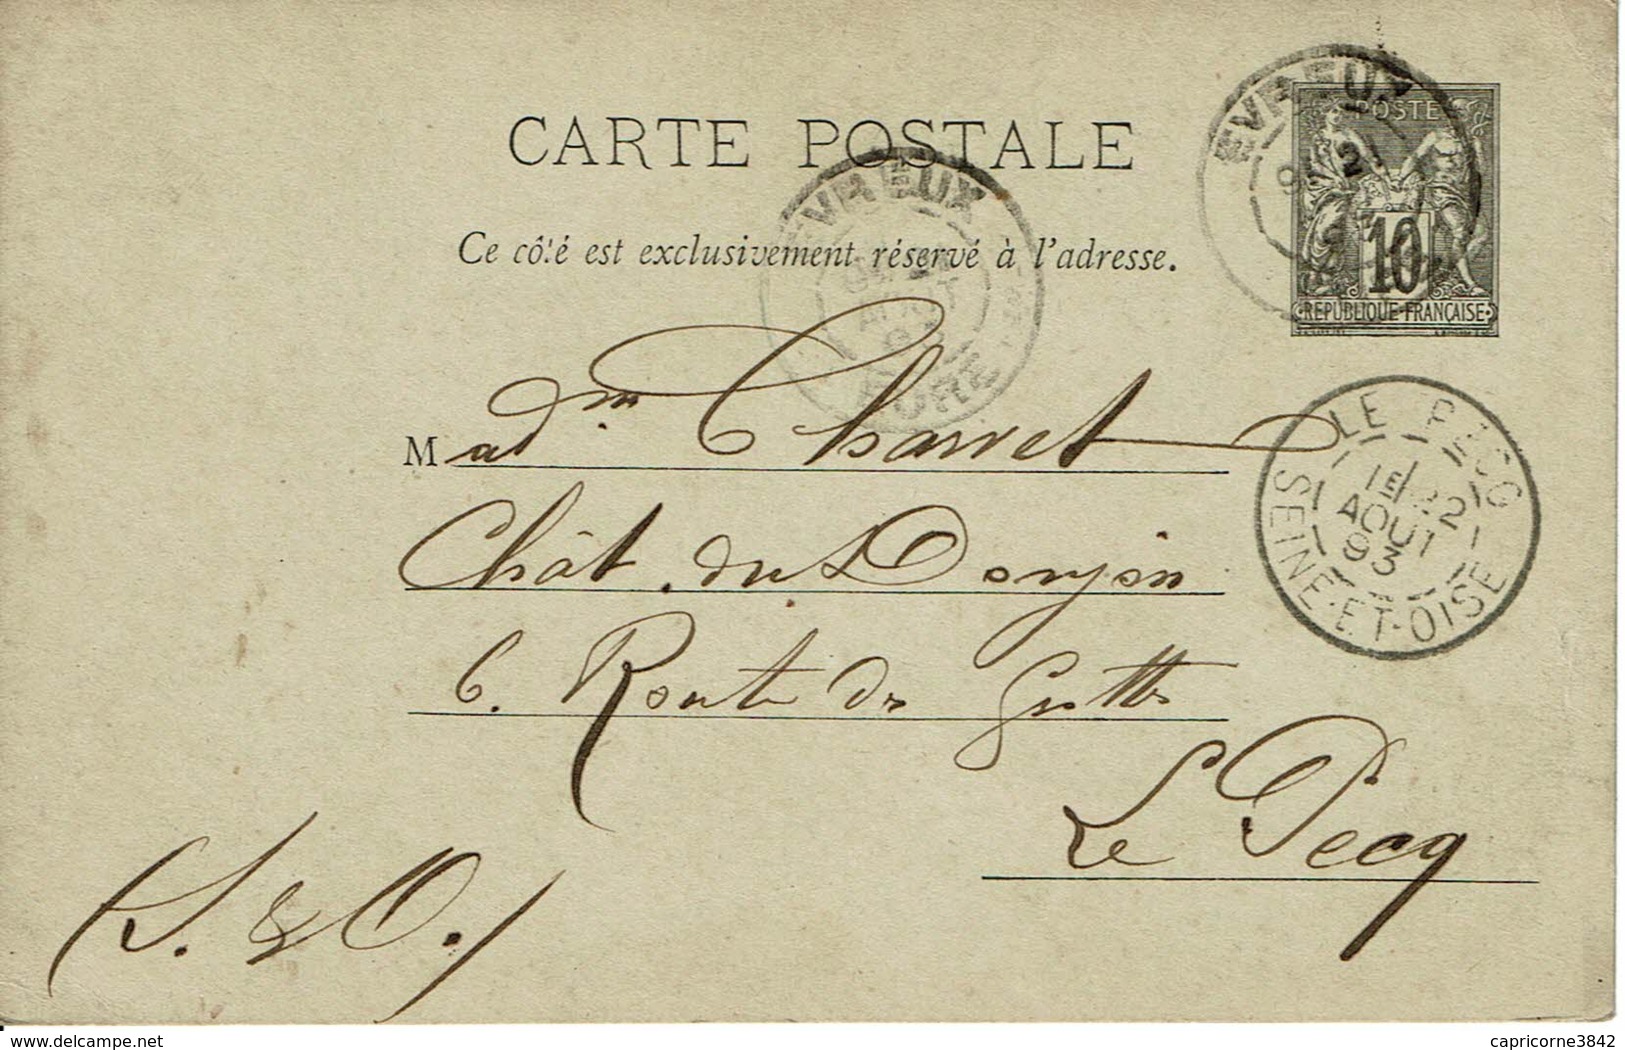 CARTE POSTALE
Ce côté est exclusivement réservé à l'adresse.
EVREUX
POSTE
10
RÉPUBLIQUE FRANÇAISE
EVREUX
AOUT
EURE
Madm Charvet
LE PECQ
1E
22
AOUT
93
SEINE-ET-OISE
Chât. du Donjon
6. Route des Grottes
Le Pecq
(S. & O.)
delcampe.net
capricorne3842